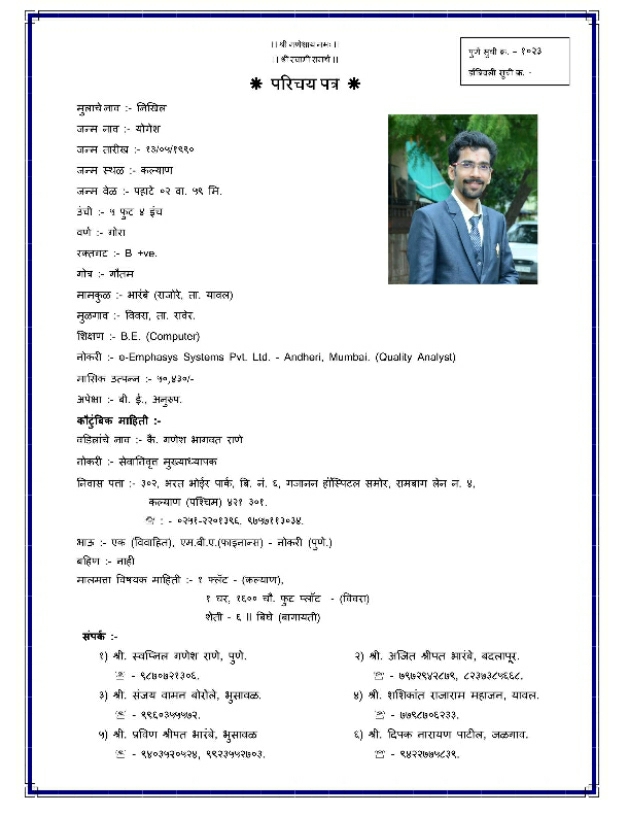 ।। श्री गणेशाय नमः ।।
।। श्री स्वामी समर्थ ।।
पुणे सुची क्र. – १०२३
डोंबिवली सुची क्र. -
❋ परिचय पत्र ❋
मुलाचे नाव :- निखिल
जन्म नाव :- योगेश
जन्म तारीख :- १३/०५/१९९०
जन्म स्थळ :- कल्याण
जन्म वेळ :- पहाटे ०२ वा. ५९ मि.
उंची :- ५ फुट ४ इंच
वर्ण :- गोरा
रक्तगट :- B +ve.
गोत्र :- गौतम
मामकुळ :- भारंबे (राजोरे, ता. यावल)
मुळगाव :- विवरा, ता. रावेर.
शिक्षण :- B.E. (Computer)
नोकरी :- e-Emphasys Systems Pvt. Ltd. - Andheri, Mumbai. (Quality Analyst)
मासिक उत्पन्न :- ५०,४३०/-
अपेक्षा :- बी. ई., अनुरुप.
कौटुंबिक माहिती :-
वडिलांचे नाव :- कै. गणेश भागवत राणे
नोकरी :- सेवानिवृत्त मुख्याध्यापक
निवास पत्ता :- ३०२, भरत भोईर पार्क, बि. नं. ६, गजानन हॉस्पिटल समोर, रामबाग लेन न. ४,
कल्याण (पश्चिम) ४२१ ३०१.
☏ : - ०२५१-२२०१३९६, ९७५७११३०३४.
भाऊ :- एक (विवाहित), एम.बी.ए.(फाइनान्स) - नोकरी (पुणे.)
बहिण :- नाही
मालमत्ता विषयक माहिती :- १ फ्लॅट - (कल्याण),
१ घर, १६०० चौ. फुट प्लॉट - (विवरा)
शेती - ६ ॥ बिघे (बागायती)
संपर्क :-
१) श्री. स्वप्निल गणेश राणे, पुणे.
☏ - ९८७०७२१३०६.
२) श्री. अजित श्रीपत भारंबे, बदलापूर.
☏ - ७९७२९४२८७९, ८२३७३८५६६८.
३) श्री. संजय वामन बोरोले, भुसावळ.
☏ - ९९६०३५५५७२.
४) श्री. शशिकांत राजाराम महाजन, यावल.
☏ - ७७९८७०६२३३.
५) श्री. प्रविण श्रीपत भारंबे, भुसावळ
☏ - ९४०३५२०५२४, ९९२३५५२७०३.
६) श्री. दिपक नारायण पाटील, जळगाव.
☏ - ९४२२७७५८३९.